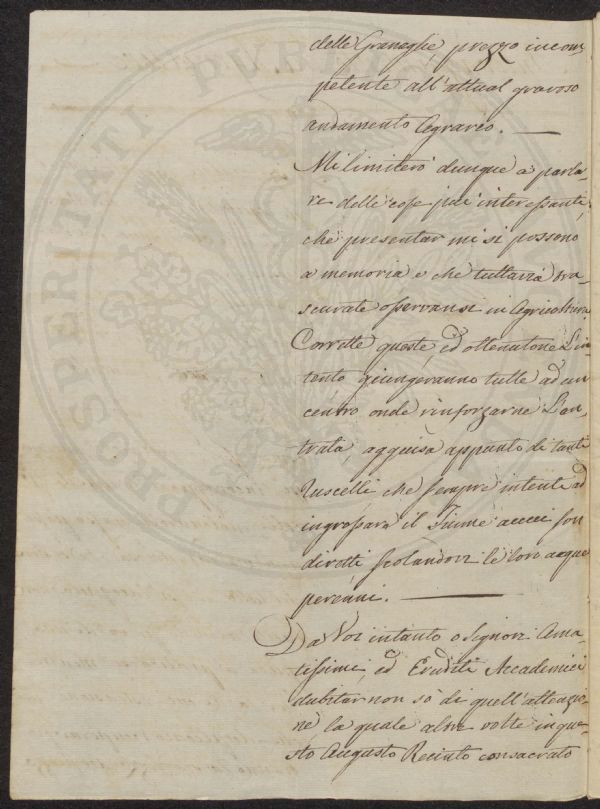 delle Granaglie, prezzo incom
petente all'attual gravoso
andamento Agrario. —
Mi limiterò dunque a parla-
re delle cose più interessanti,
che presentar mi si possono
a memoria e che tuttavia tra-
scurate osservansi in Agricoltura.
Corrette queste, ed ottenutone L'in
tento giungeranno tutte ad un
centro onde rinforzarne L'en
trata, agguisa appunto di tanti
Ruscelli, che sempre intenti ad
ingrossare il Fiume a cui son
diretti scolandovi le loro acque
perenni. —
Da Voi intanto o Signori Ama-
tissimi, ed Eruditi Accademici
dubitar non sò di quell'attenzio-
ne, la quale altre volte in que-
sto Augusto Recinto consacrato
PROSPERITATI PUBLICAE